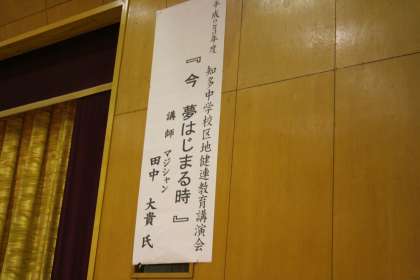 平成 年度
知多中学校区地健連教育講演会
『今 夢はじまる時』
講師 マジシャン
田中 大貴 氏